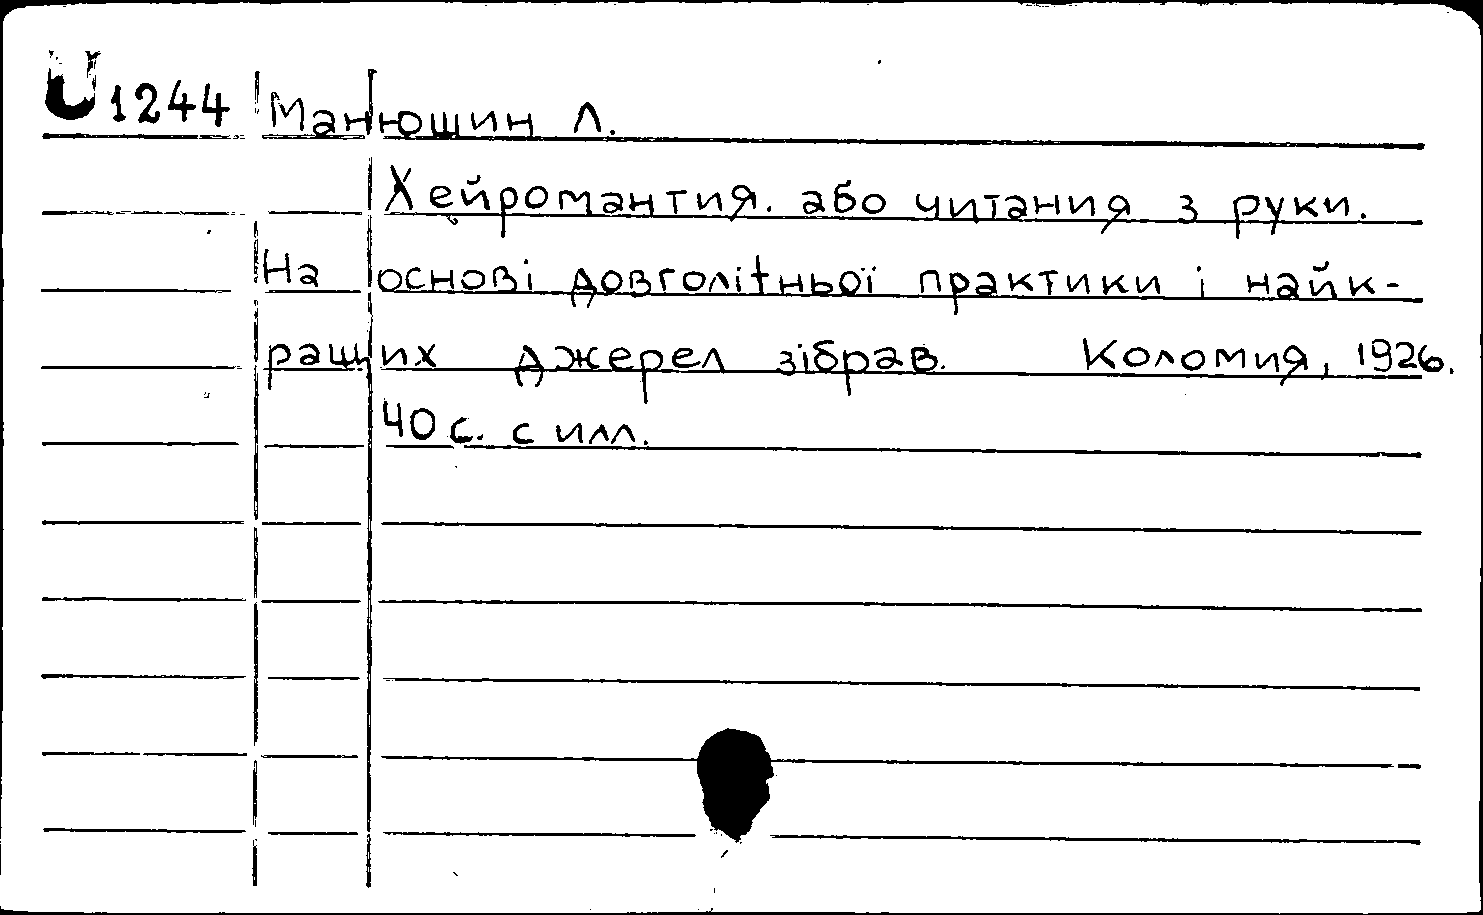 U 1244 Манюшин Л.
Хейромантия. або читания з руки.
На основі довголітньої практики і найк-
ращих джерел зібрав. Коломия, 1926.
40 с. с илл.